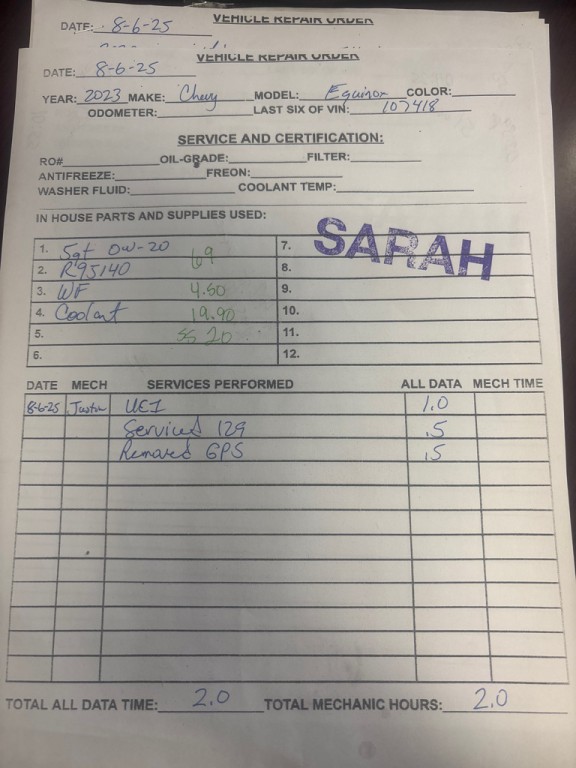 VEHICLE REPAIR ORDER
DATE: 8-6-25
VEHICLE REPAIR ORDER
DATE: 8-6-25
YEAR: 2023 MAKE: Chevy MODEL: Equinox COLOR:
ODOMETER: LAST SIX OF VIN: 107418
SERVICE AND CERTIFICATION:
RO# OIL-GRADE: FILTER:
ANTIFREEZE: FREON:
WASHER FLUID: COOLANT TEMP:
IN HOUSE PARTS AND SUPPLIES USED:
SARAH
1. 5qt 0W-20 69 7.
2. R95140 8.
3. WF 4.50 9.
4. Coolant 19.90 10.
5. SS 20 11.
6. 12.
DATE MECH SERVICES PERFORMED ALL DATA MECH TIME
8-6-25 Justin UEI 1.0
Serviced 129 .5
Removed GPS .5
TOTAL ALL DATA TIME: 2.0 TOTAL MECHANIC HOURS: 2.0